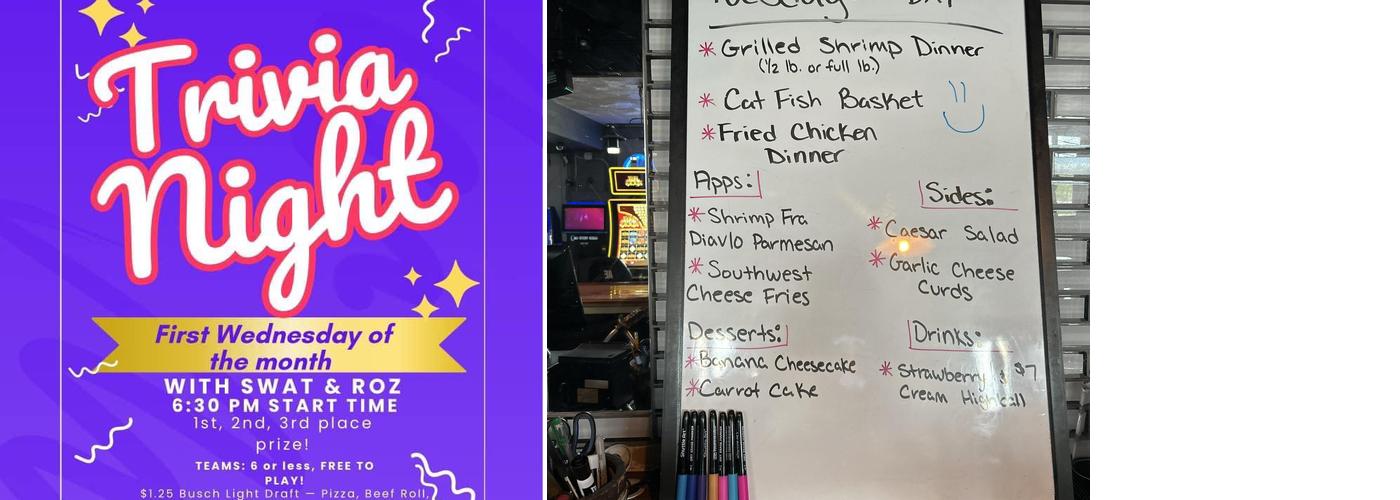 Trivia
Night
First Wednesday of
the month
WITH SWAT & ROZ
6:30 PM START TIME
1st, 2nd, 3rd place
prize!
TEAMS: 6 or less, FREE TO
PLAY!
$1.25 Busch Light Draft — Pizza, Beef Roll,
* Grilled Shrimp Dinner
(1/2 lb. or full lb.)
* Cat Fish Basket
* Fried Chicken
Dinner
Apps:
* Shrimp Fra
Diavlo Parmesan
* Southwest
Cheese Fries
Sides:
* Caesar Salad
* Garlic Cheese
Curds
Desserts:
* Banana Cheesecake
* Carrot Cake
Drinks:
* Strawberry $7
Cream Highball